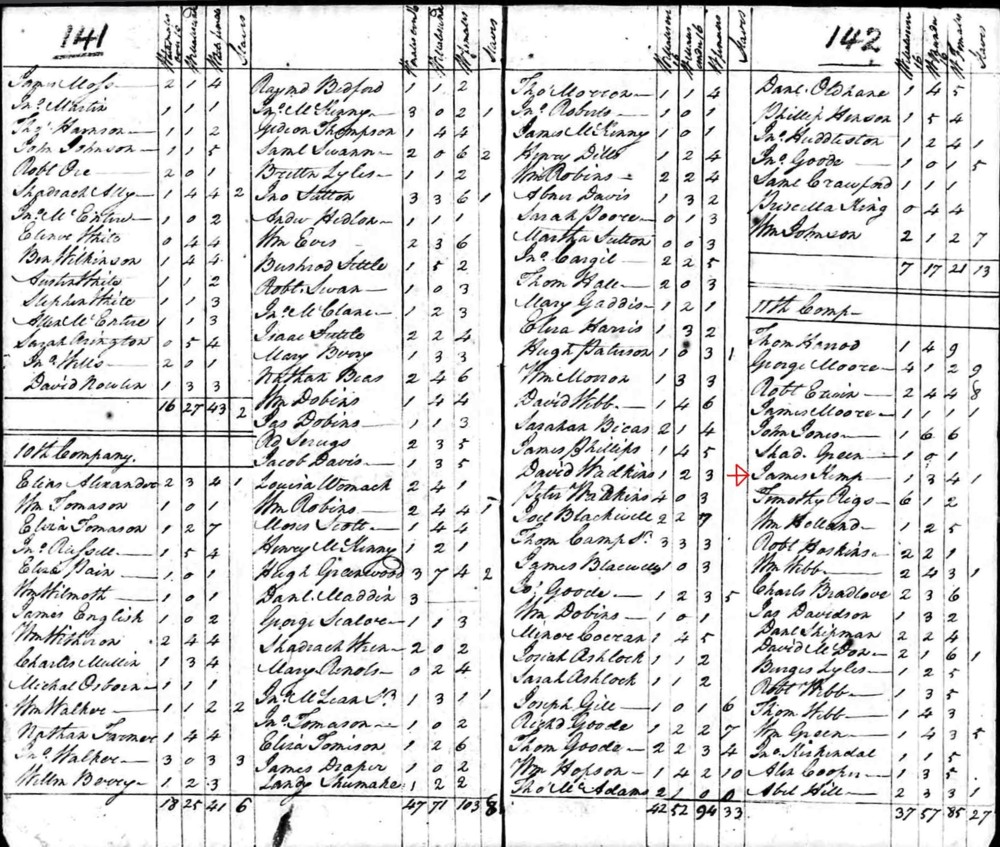 141
Males above 16
Males under 16
Females
Slaves
James Moss 2 1 4
Jno. Martin 1 1 1
Thos. Harrison 1 1 2
John Johnson 1 1 5
Robt Ore 2 0 1
Shadrach Ally 1 4 4 2
Jno. McEntire 1 0 2
White 0 4 4
Ben Wilkinson 1 4 4
Austin White 1 1 2
Stephen White 1 1 3
Allen McEntire 1 1 3
Sarah Arrington 0 5 4
Jno. Wills 2 0 1
David Nowlin 1 3 3
16 27 43 2
10th Company.
Elias Alexander 2 3 4 1
Wm Tomason 1 0 1
Eliza Tomason 1 2 7
Jno. Russell 1 5 4
Eliza Pain 1 0 1
Wm Wilmoth 1 0 1
James English 1 0 2
Wm 2 4 4
Charles Mullin 1 3 4
Michal Osborn 1 1 1
Wm Walker 1 1 2 2
Nathan Farmer 1 4 4
Jno. Walker 3 0 3 3
Willm Bovey 1 2 3
18 25 41 6
Raymd Bedford 1 1 2
Jno. McKinny 3 0 2 1
Gideon Thompson 1 4 4
Saml Swann 2 0 6 2
Britton Lyles 1 1 2
Jno Sutton 3 3 6 1
Andw Hidlon 1 1 1
Wm Eves 2 3 6
Bushrod Settle 1 5 2
Robt. Swan 1 0 3
Jno. McClane 1 2 3
Isaac Tuttle 2 2 4
Mary Bovey 1 3 3
Nathan Beas 2 4 6
Wm Dobins 1 4 4
Jas Dobins 1 1 3
Rd Scrugs 2 3 5
Jacob Davis 1 3 5
Louisa Womack 2 4 1
Wm Robins 2 4 4 1
Moses Scott 1 4 4
Henry McKinny 1 2 1
Hugh Greenwood 3 7 4 2
Danl. Maddin 3
George Sealove 1 1 3
Shadrach Wren 2 0 2
Mary Renols 0 2 4
Jno. McLean Sr 1 3 1 1
Jno. Tomason 1 0 2
Eliza Tomison 1 2 6
James Draper 1 0 2
Landy Shumake 1 2 2
47 71 103 8
Thos Morron 1 1 4
Jno. Roberts 1 0 1
James McKinny 1 0 1
Henry Dills 1 2 4
Wm Robins 2 2 4
Abner Davis 1 3 2
Sarah Poore 0 1 3
Martha Sutton 0 0 3
Jno. Cargil 2 2 5
Thom Hall 2 0 3
Mary Gaddis 1 2 1
Eliza Harris 1 3 2
Hugh Paterson 1 0 3 1
Wm Morron 1 3 3
David Webb 1 4 6
Sarahan Bicas 2 1 4
James Phillips 1 4 5
David Wadkins 1 2 3
Peter Wadkins 4 0 3
Joel Blackwell 2 2 7
Thom Camp Sr. 3 3 3
James Blacwell 1 0 3
Goode 1 2 3 5
Wm Dobins 1 0 1
Minor Cocran 1 4 5
Josiah Ashlock 1 1 2
Sarah Ashlock 1 1 2
Joseph Gill 1 0 1 6
Richd Goode 1 2 2 7
Thom Goode 2 2 3 4
Wm Hopson 1 4 2 10
Thos. McAdams 2 1 0 0
42 52 94 33
142
Danl. Oldhane 1 4 5
Phillip Henson 1 5 4
Jno. Huddleston 1 2 4 1
Jno. Goode 1 0 1 5
Saml Crawford 1 1 1
Priscilla King 0 4 4
Wm Johnson 2 1 2 7
7 17 21 13
11th Comp
Thom Harrod 1 4 9
George Moore 4 1 2 9
Robt Erwin 2 4 4 8
James Moore 1 1 1 1
John Jones 1 6 6
Shad. Green 1 0 1
James Kemp 1 3 4 1
Timothy Rigs 6 1 2
Wm Holland 1 2 5
Robt Hoskins 2 2 1
Wm Webb 2 4 3 1
Charls Bradlove 2 3 6
Jas Davidson 1 3 2
Danl Shipman 2 2 4
David McDon 2 1 6 1
Burges Lyles 1 2 5
Robt Webb 1 3 5
Thom Webb 1 4 3
Wm Green 1 4 3 5
Jno Kirkendal 1 1 5
Alex Cooper 1 3 5
Abel Hill 2 3 3 1
37 57 85 27